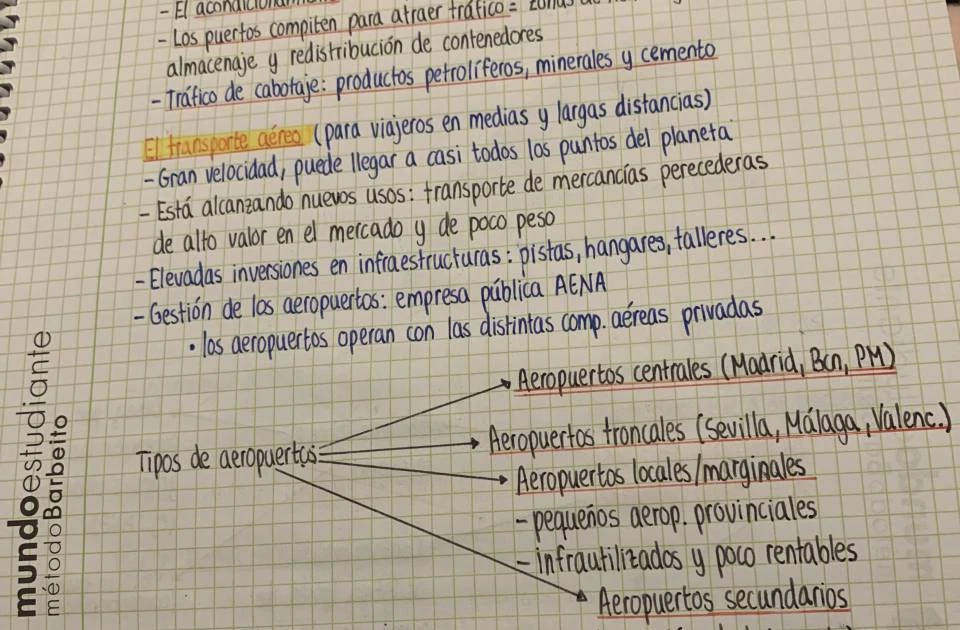 - El
- Los puertos compiten para atraer tráfico = zonas de
almacenaje y redistribución de contenedores
- Tráfico de cabotaje: productos petrolíferos, minerales y cemento
El transporte aéreo (para viajeros en medias y largas distancias)
- Gran velocidad, puede llegar a casi todos los puntos del planeta
- Está alcanzando nuevos usos: transporte de mercancías perecederas
de alto valor en el mercado y de poco peso
- Elevadas inversiones en infraestructuras: pistas, hangares, talleres...
- Gestión de los aeropuertos: empresa pública AENA
• los aeropuertos operan con las distintas comp. aéreas privadas
Tipos de aeropuertos
Aeropuertos centrales (Madrid, Bcn, PM)
Aeropuertos troncales (Sevilla, Málaga, Valenc.)
Aeropuertos locales/marginales
- pequeños aerop. provinciales
- infrautilizados y poco rentables
Aeropuertos secundarios
mundoestudiante
métodoBarbeito